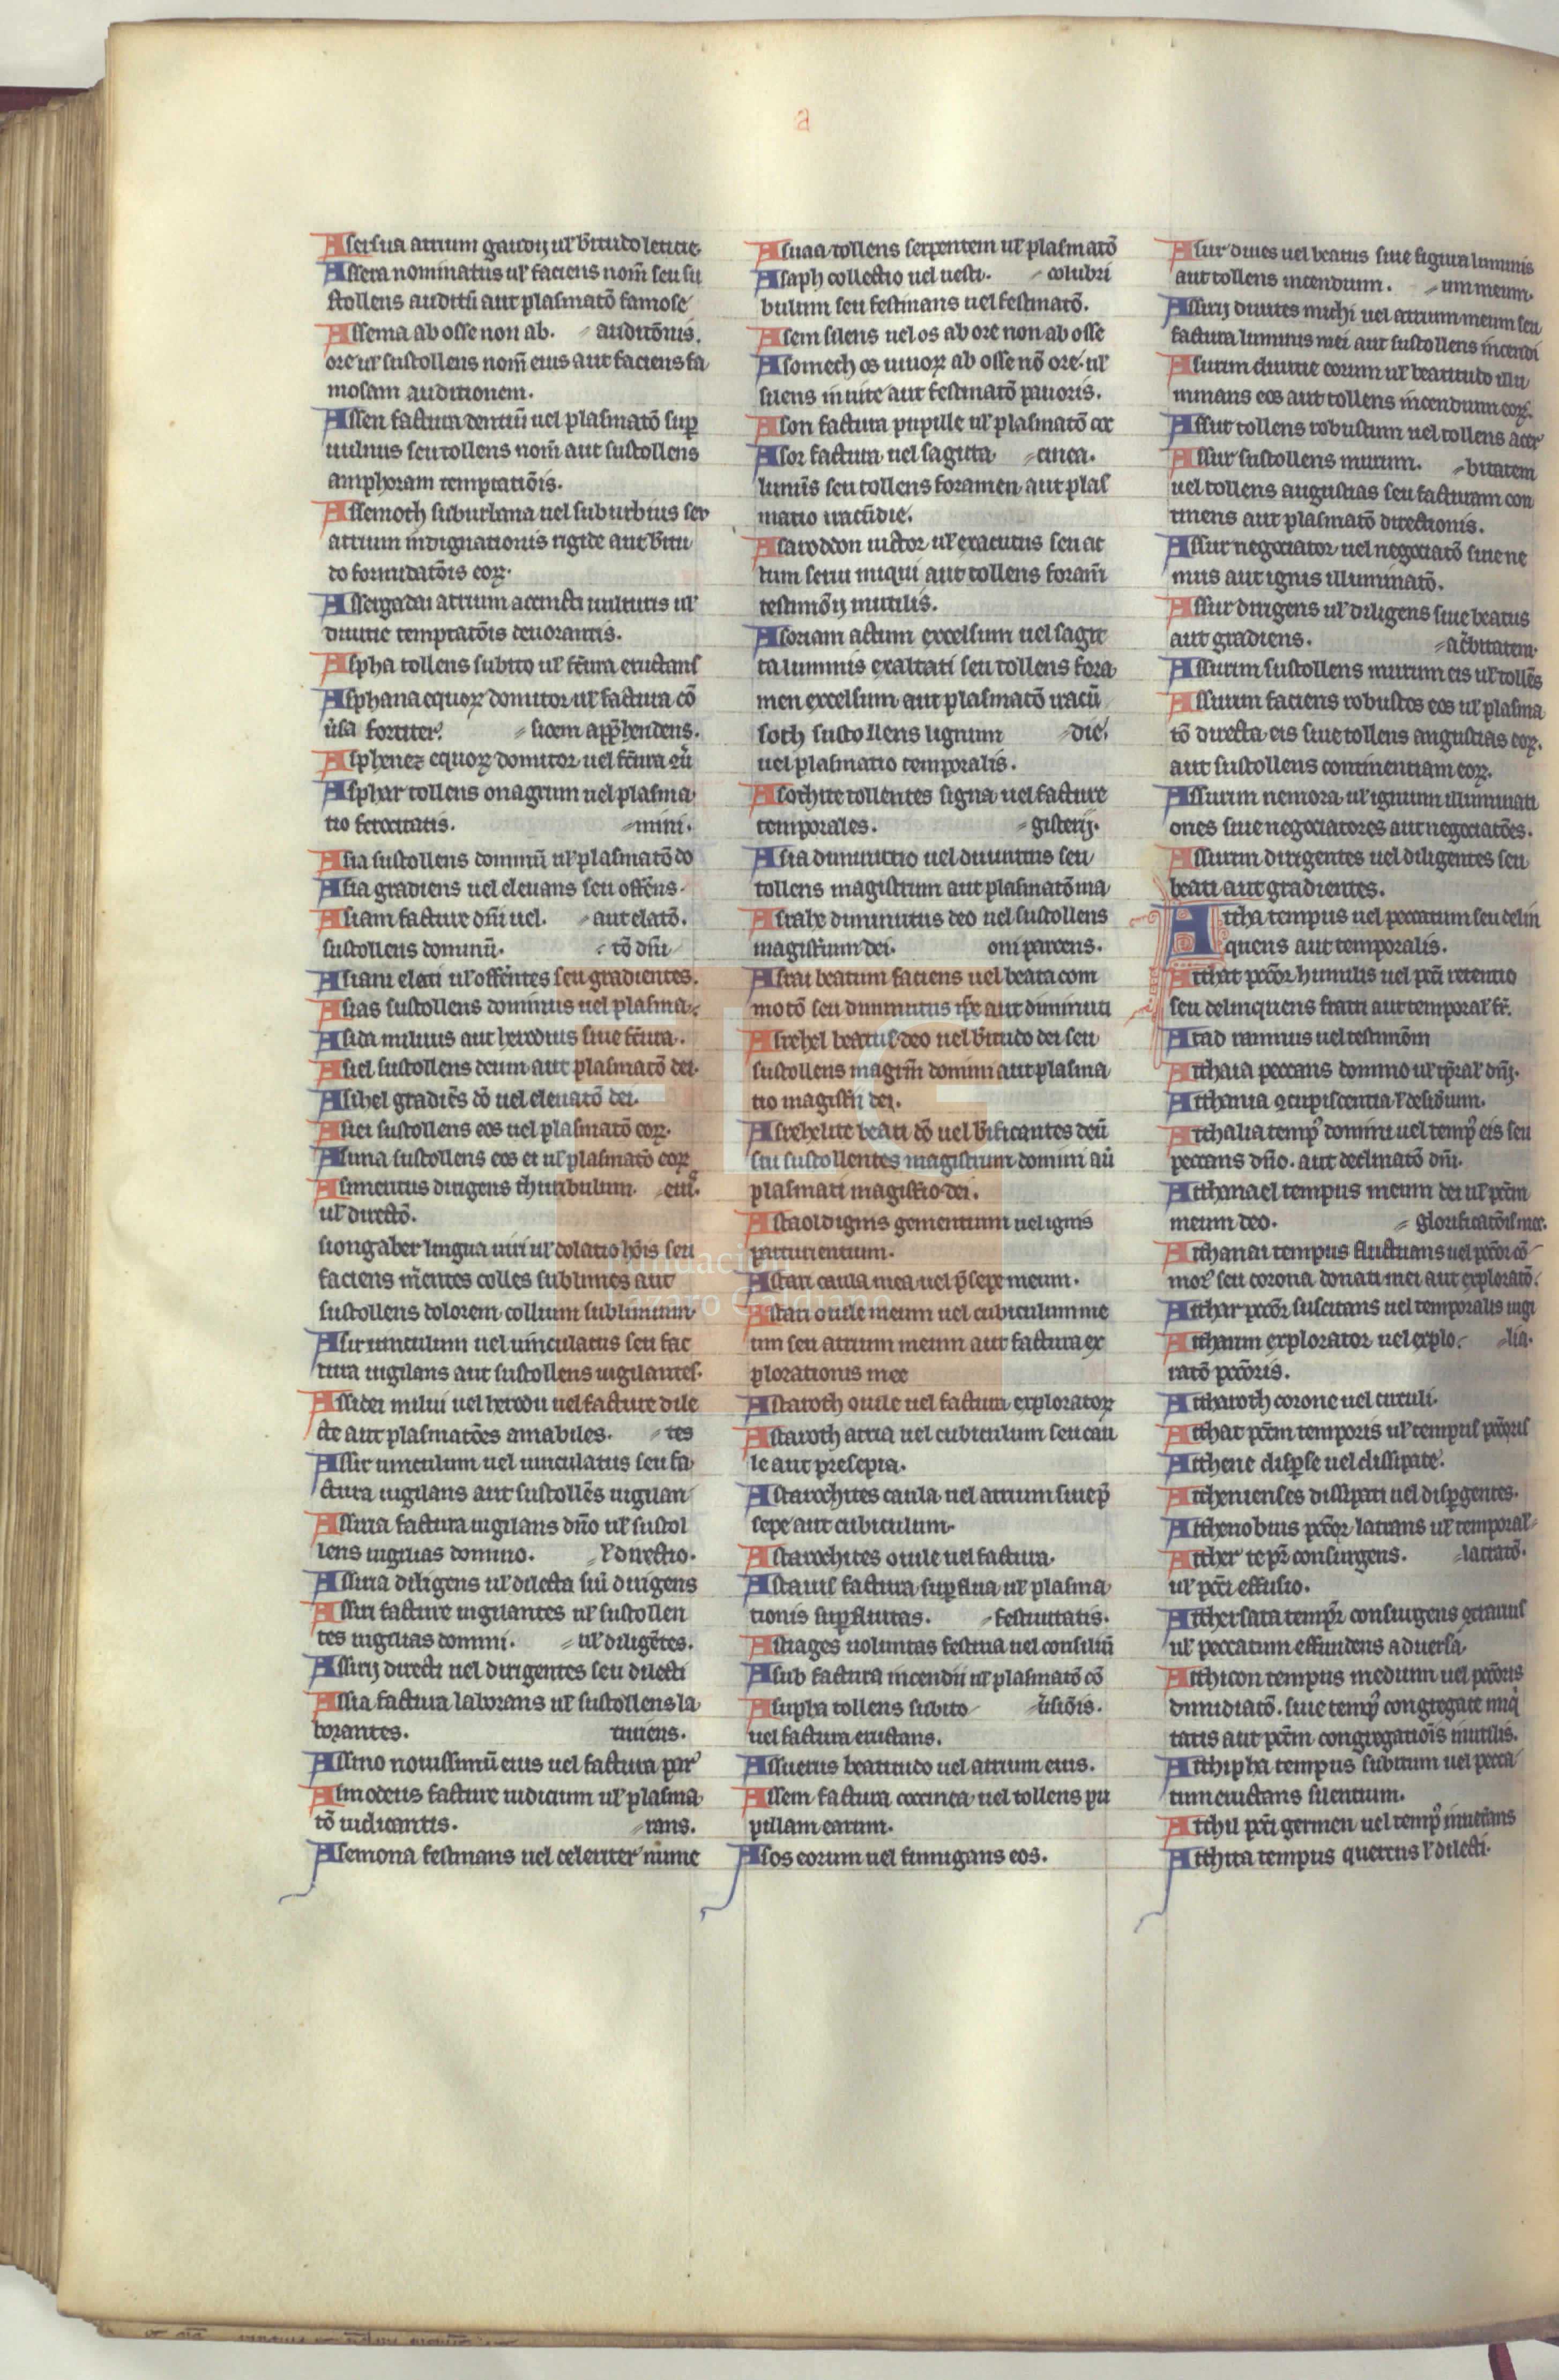 a
Asersua atrium gaudij ul' b̄titudo leticie.
Assera nominatus ul' faciens nom̄ seu su
stollens auditū aut plasmatō famose
Assema ab osse non ab. auditōnis.
ore ul' sustollens nom̄ eius aut faciens fa
mosam auditionem.
Assen factura dentiū uel plasmatō sup̄
uulnus seu tollens nom̄ aut sustollens
amphoram temptatiōis.
Assemoth suburbana uel suburbius seu
atrium indignationis rigide aut b̄titu
do formidatōis eoꝝ.
Assergadai atrium accincti uulturis ul'
diuitie temptatōis deuorantis.
Aspha tollens subito ul' fc̄ura eructans
Asphana equoꝝ domitor ul' factura cō
u̓sa fortiter. sicem app̄hendens.
Asphenez equoꝝ domitor uel fc̄ura
Asphar tollens onagrum uel plasma
tio ferocitatis. mini.
Asia sustollens dominū ul' plasmatō do
Asia gradiens uel eleuans seu offēns.
Asiam facture dn̄i uel. aut elatō.
sustollens dominū. tō dn̄i
Asiani elati ul' offēntes seu gradientes.
Asias sustollens dominus uel plasma
Asida miluus aut herodius siue fc̄ura.
Asiel sustollens deum aut plasmatō dei.
Asihel gradiēs dō uel eleuatō dei.
Asiei sustollens eos uel plasmatō eoꝝ.
Asima sustollens eos et ul' plasmatō eoꝝ
Asimeritus dirigens thuribulum. eius.
ul' directō.
siongaber lingua uiri ul' dolatio hōis seu
faciens m̄entes colles sublimes aut
sustollens dolorem collium sublimium.
Asir uinculum uel uinculatus seu fac
tura uigilans aut sustollens uigilantes.
Assidei milui uel herodii uel facture dile
cte aut plasmatōes amabiles. tes
Assir uinculum uel uinculatus seu fa
ctura uigilans aut sustollēs uigilan
Assira factura uigilans dn̄o ul' sustol
lens uigilias domino. l' directio.
Assira diligens ul' dilecta siū dirigens
Assiri facture uigilantes ul' sustollen
tes uigilias domini. ul' diligētes.
Assirij directi uel dirigentes seu dilecti
Assia factura laborans ul' sustollens la
borantes. turiens.
Assino nouissimū eius uel factura par
Asmodeus facture iudicium ul' plasma
tō iudicantis. rans.
Asemona festinans uel celeriter nūme
Asuaa tollens serpentem ul' plasmatō
Asaph collectio uel uesti. colubri
bulum seu festinans uel festinatō.
Asem silens uel os ab ore non ab osse
Asomech os uiuoꝝ ab osse nō ore. ul'
silens in uite aut festinatō pauoris.
Ason factura pupille ul' plasmatō coc
Asor factura uel sagitta cinea.
lumīs seu tollens foramen aut plas
matio uacūdie.
Asarodeon uictor ul' exacutus seu ac
tum serui iniqui aut tollens foram̄
testimōij inutilis.
Asoriam actum excelsum uel sagit
ta luminis exaltati seu tollens fora
men excelsum aut plasmatō uacū
soth sustollens lignum die.
uel plasmatio temporalis.
Asothite tollentes signa uel facture
temporales. gisterij.
Asra diminutio uel diminutus seu
tollens magistrum aut plasmatō ma
Asrahe diminutus deo uel sustollens
magistrum dei. om̄ parcens.
Asrai beatum faciens uel beata com
motō seu diminutus ip̄e aut diminuti
Asrehel beatus deo uel b̄titudo dei seu
sustollens magrm̄ domini aut plasma
tio magistri dei.
Asrehelite beati dō uel b̄tificantes deū
siu sustollentes magistrum domini aū
plasmati magistrio dei.
Astaol dignis gementium uel ignis
parturientium.
Astari caula mea uel p̄sepe meum.
Astari ouile meum uel cubiculum me
um seu atrium meum aut factura ex
plorationis mee
Astaroth ouile uel factura exploratoꝝ
Astaroth atria uel cubiculum seu cau
le aut presepia.
Astarothites caula uel atrium siue p̄
sepe aut cubiculum.
Astarothites ouile uel factura.
Astauis factura sup̄flua ul' plasma
tionis sup̄fluitas. festiuitatis.
Astiages uoluntas festiua uel consiliū
Asub factura incendii ul' plasmatō cō
Asupha tollens subito u̓siōis.
uel factura eructans.
Assuerus beatitudo uel atrium eius.
Assem factura coccinea uel tollens pu
pillam earum.
Asos eorum uel fumigans eos.
Asur diues uel beatus siue figura luminis
aut tollens incendium. um meum.
Assurij diuites michi uel atrium meum seu
factura luminis mei aut sustollens incendi
Asurim diuitie eorum ul' beatitudo illu
minans eos aut tollens incendium eoꝝ.
Assur tollens robustum uel tollens acer
Assur sustollens murum. bitatem
uel tollens angustias seu facturam con
tinens aut plasmatō directionis.
Assur negociator uel negociatō siue ne
mus aut ignis illuminatō.
Assur dirigens ul' diligens siue beatus
aut gradiens. ac̄bitatem.
Assurim sustollens murum eis ul' tollēs
Assurim faciens robustos eos ul' plasma
tō directa eis siue tollens angustias eoꝝ.
aut sustollens continentiam eoꝝ.
Assurim nemora ul' ignium illuminati
ones siue negociatores aut negociatōes.
Assurim dirigentes uel diligentes seu
beati aut gradientes.
Attha tempus uel peccatum seu delin
quens aut temporalis.
Atthat pccōr humilis uel pcc̄i retentio
seu delinquens fratri aut temporal' fr̄.
Atad ramnus uel testimōm
Atthaia peccans domino ul' tp̄ral' dn̄j.
Atthania ꝯcupiscentia l' desid̓ium.
Atthalia temp' domini uel temp' eis seu
peccans dn̄o. aut declinatō dn̄i.
Atthanael tempus meum dei ul' pcc̄m
meum deo. glorificatōis mee.
Atthanai tempus fluctuans uel pccōr cō
mor' seu corona donati mei aut exploratō.
Atthar pccōr suscitans uel temporalis uigi
Attharim explorator uel explo. lia.
ratō pccōris.
Attharoth corone uel circuli.
Atthat pcc̄m temporis ul' tempus pccōris
Atthene disp̄se uel dissipate.
Atthenienses dissipati uel disp̄gentes.
Atthenobius pccōr latrans ul' temporal'
Atther te pr̄ consurgens. latratō.
ul' pcc̄i effusio.
Atthersata temp̄r consurgens octauus
ul' peccatum effundens aduersa
Atthicon tempus medium uel pccōris
dimidiatō. siue temp' congregate iniq̄
tatis aut pcc̄m congregatiōis inutilis.
Atthipha tempus subitum uel pecca
tum eructans silentium.
Atthil pcc̄i germen uel temp' inueniens
Atthita tempus quercus l' dilecti.
Fundación
Lázaro Galdiano